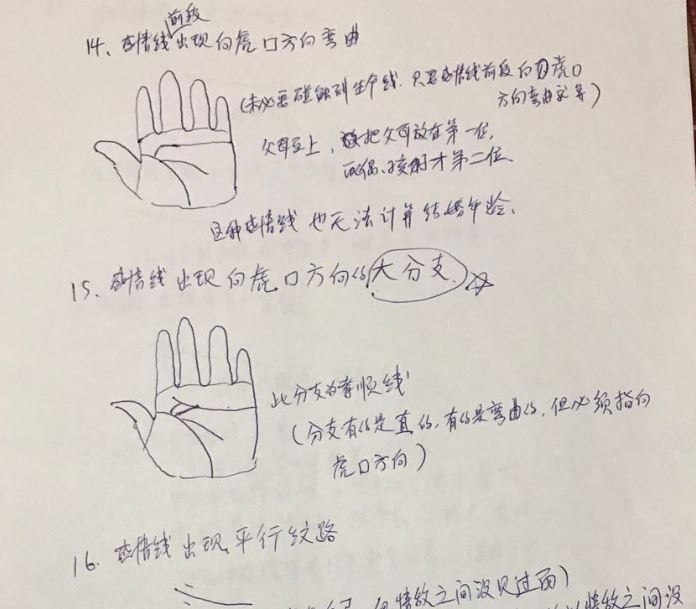 14、感情线前段出现向虎口方向弯曲
(未必要碰触到生命线.只要感情线前段向虎口
方向弯曲就算)
父母至上，会把父母放在第一位，
配偶、孩子才第二位、
这种感情线也无法计算结婚年龄、
15、感情线出现向虎口方向的大分支.☆
此分支为孝顺线
(分支有的是直的,有的是弯曲的,但必须指向
虎口方向)
16、感情线出现平行纹路
但情敌之间没见过面)
情敌之间没